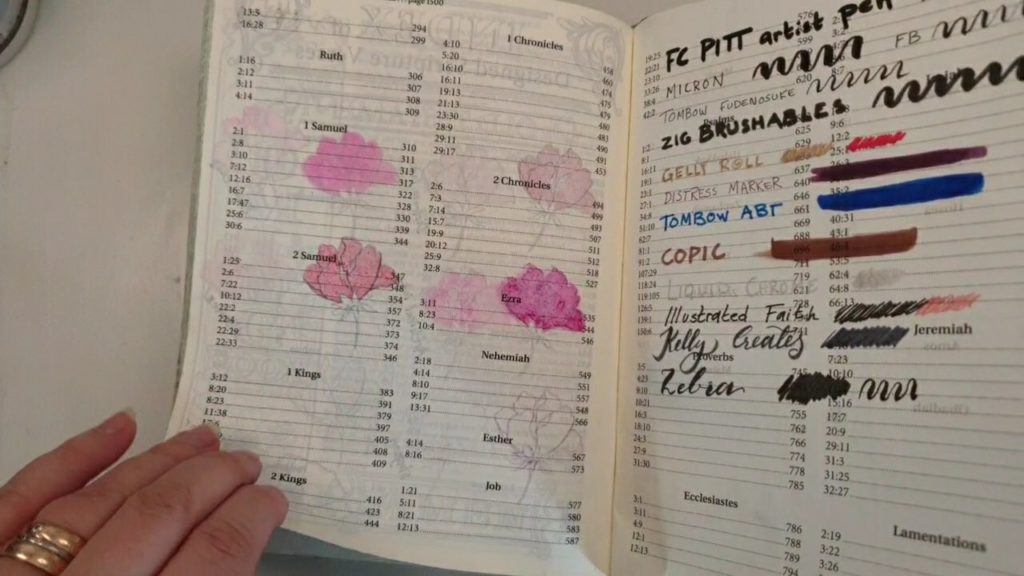 13:5 294
16:28 299
Ruth
1:16 306
2:12 307
3:11 308
4:14 309
1 Samuel
2:1 310
2:8 311
3:10 313
7:12 317
12:16 322
16:7 328
17:47 330
25:6 339
30:6 344
2 Samuel
1:25 347
2:6 348
7:22 354
10:12 357
22:2 372
22:4 373
22:29 374
22:33 346
1 Kings
3:12 383
8:20 391
8:23 379
11:38 397
405
408
409
2 Kings
416
423
444
1 Chronicles
4:10 458
5:20 460
16:10 474
16:11 475
19:13 479
21:13 480
23:30 483
28:9 490
29:11 491
29:17 453
2 Chronicles
2:6 494
7:3
7:14 499
15:7 507
19:9 511
20:12 512
25:9 518
32:8 527
Ezra
3:11 535
8:23 544
10:4 546
Nehemiah
2:18 549
4:14 551
8:10 557
9:17 548
13:31 566
Esther
4:14 567
8:16 573
Job
1:21 577
5:11 580
8:21 583
12:13 587
FC PITT artist pen
MICRON FB
TOMBOW FUDENOSUKE
ZIG BRUSHABLES
GELLY ROLL
DISTRESS MARKER
TOMBOW ABT
COPIC
LIQUID CHROME
Illustrated Faith
Kelly Creates
Zebra
Psalms
625
629
637
640
646
661
669
688
Proverbs
755
16:3 762
18:10 766
24:3 774
27:9 778
31:30 785
Ecclesiastes
3:1 786
3:11 788
4:9 789
12:1 794
12:13
9:6
12:2
40:31
43:1
53:5
62:4
64:8
66:13
Jeremiah
7:23
10:10
15:16
17:7
20:9
29:11
31:3
31:25
32:27
Lamentations
2:19
3:22
3:26